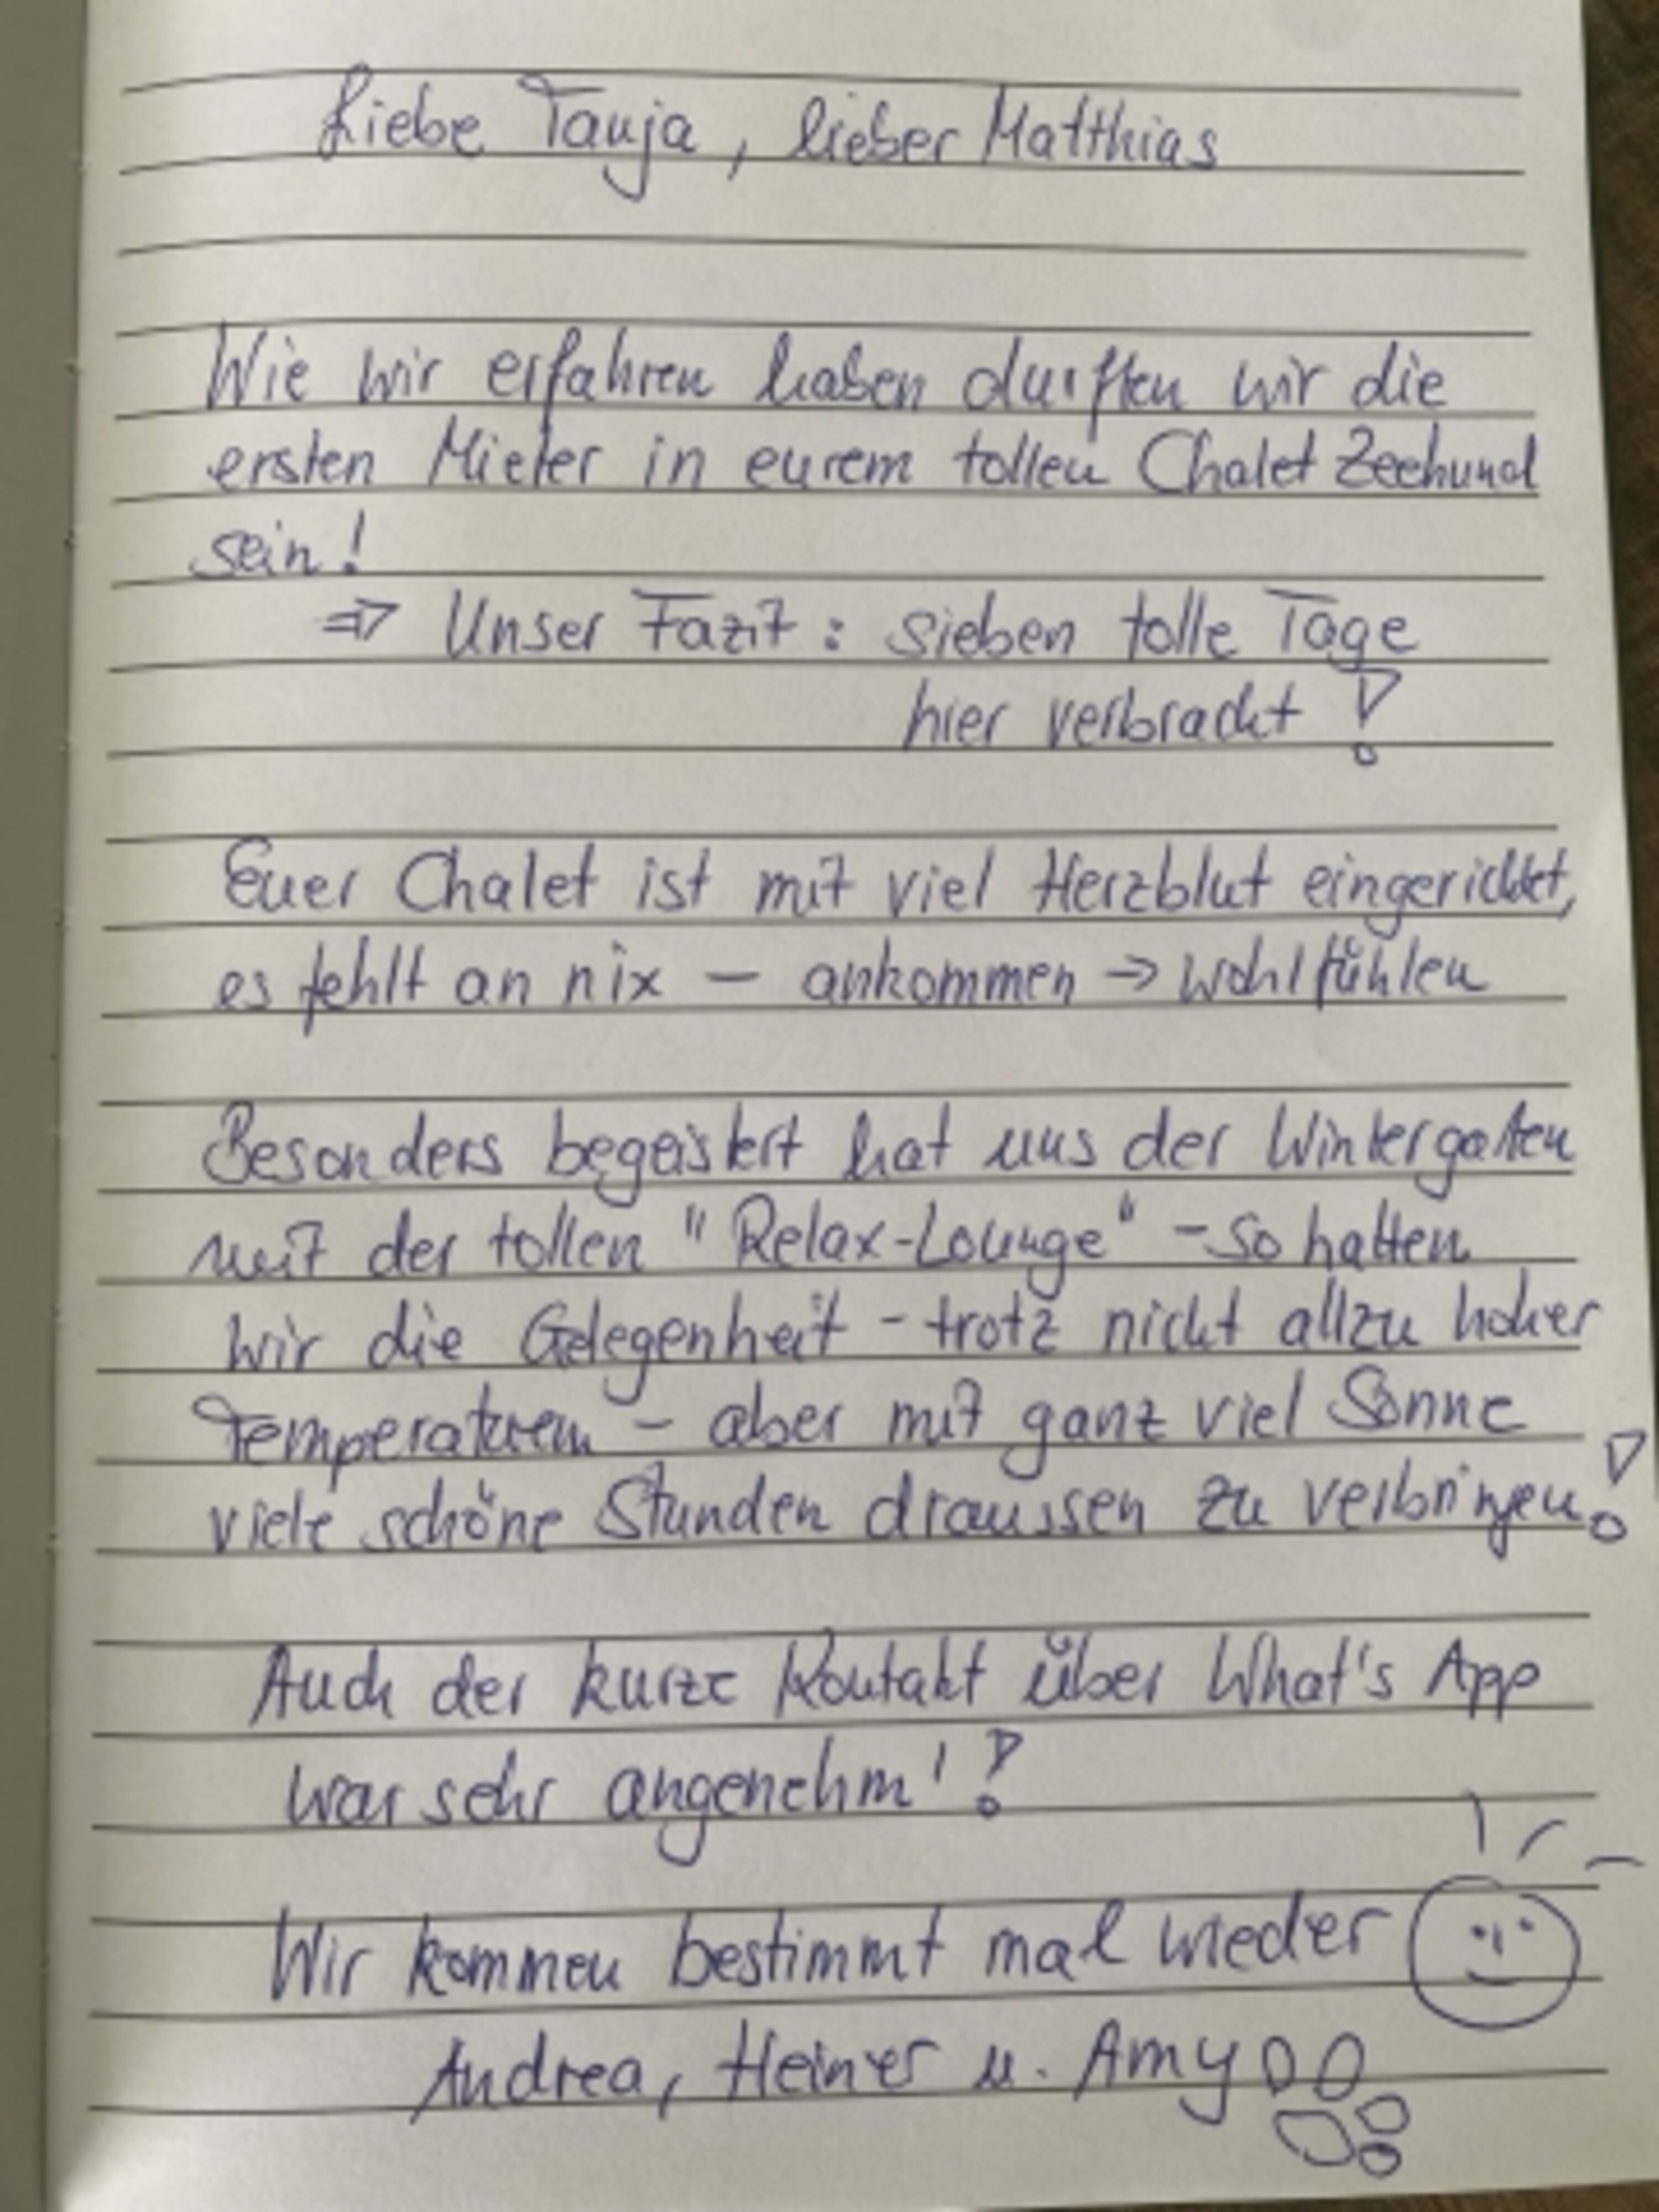 Liebe Tanja, lieber Matthias
Wie wir erfahren haben durften wir die
ersten Mieter in eurem tollen Chalet Zeehund
sein!
⇒ Unser Fazit: sieben tolle Tage
hier verbracht!
Euer Chalet ist mit viel Herzblut eingerichtet,
es fehlt an nix – ankommen → wohlfühlen
Besonders begeistert hat uns der Wintergarten
mit der tollen "Relax-Lounge" - so hatten
wir die Gelegenheit - trotz nicht allzu hoher
Temperaturen - aber mit ganz viel Sonne
viele schöne Stunden draussen zu verbringen!
Auch der kurze Kontakt über What's App
war sehr angenehm!!
Wir kommen bestimmt mal wieder
Andrea, Heiner u. Amy